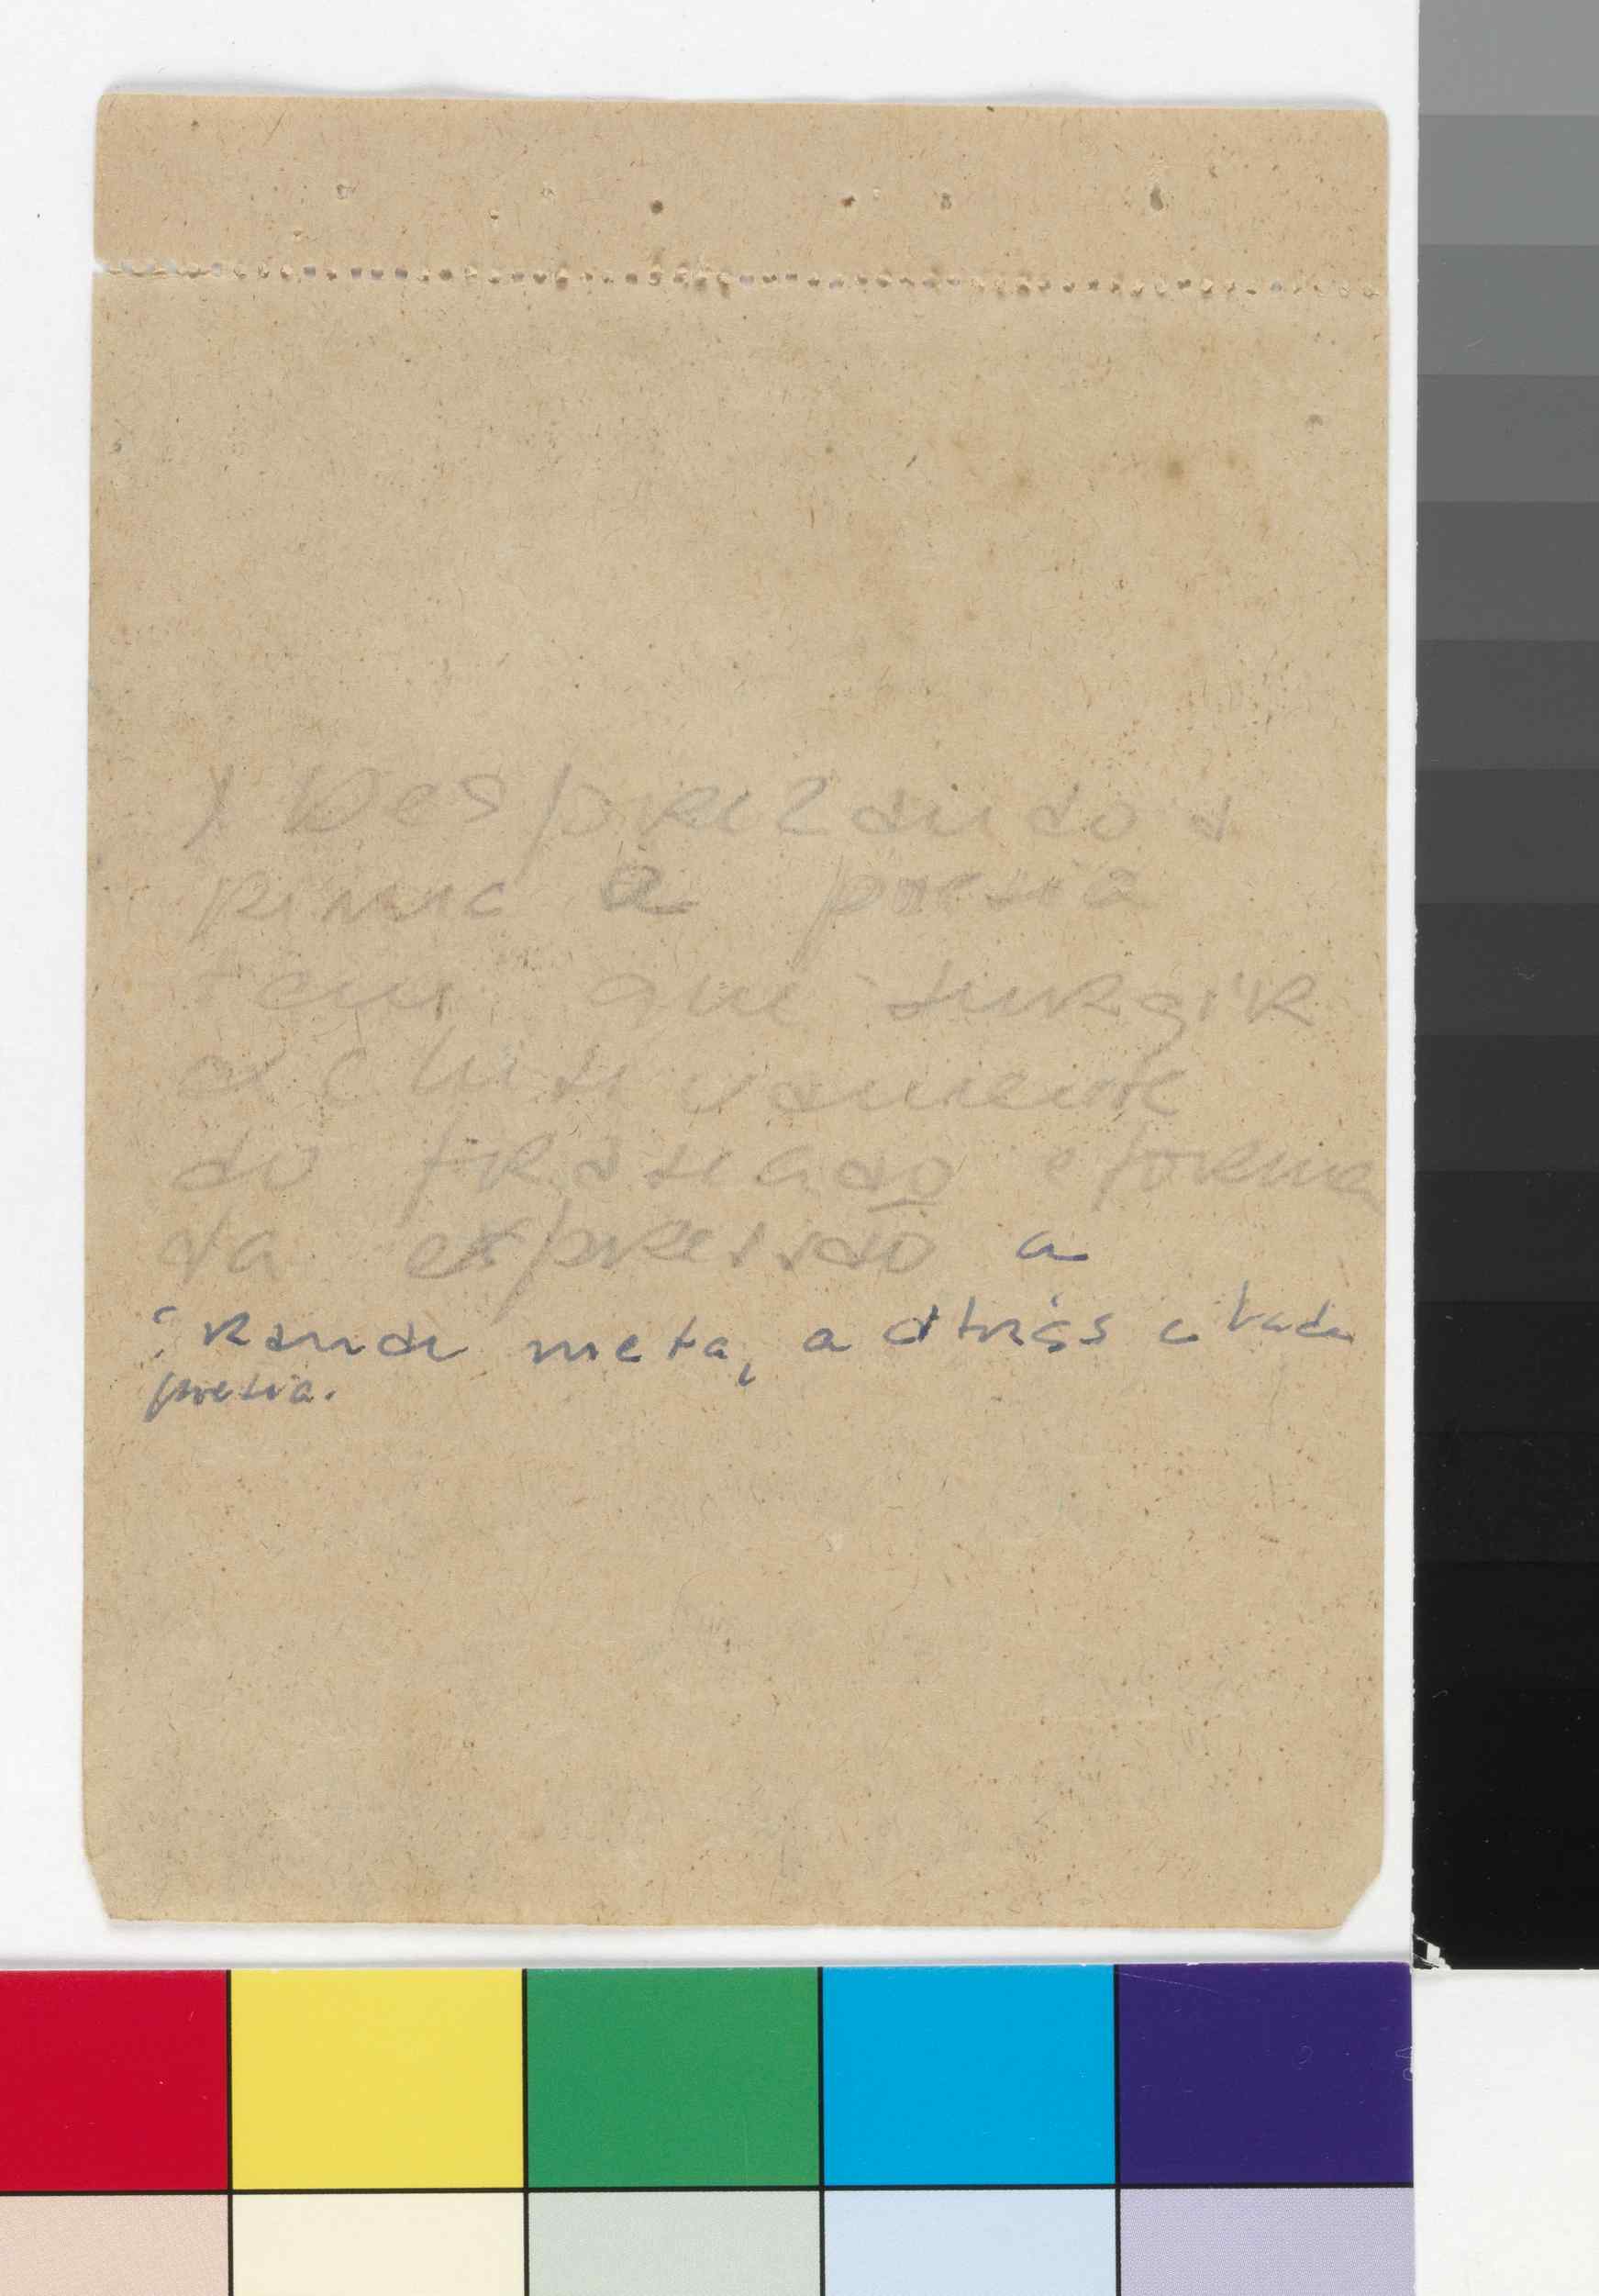 ) Desprezando a
rima a poesia
tem que surgir
exclusivamente
do fraseado e forma
da expressão a
grande meta, a atrás citada
poesia.